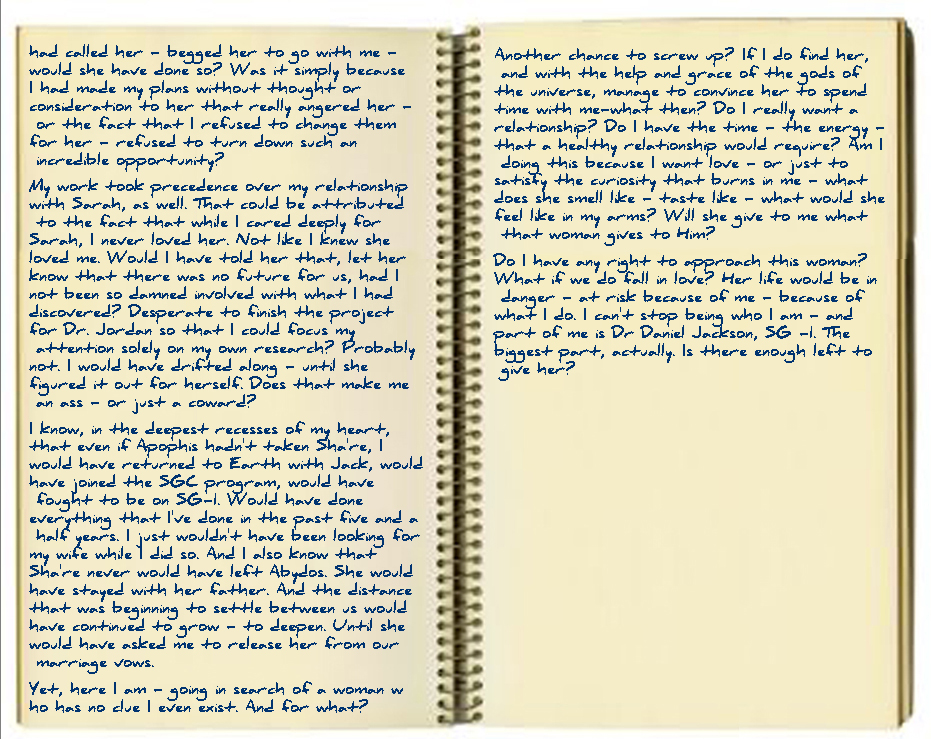 had called her - begged her to go with me -
would she have done so? Was it simply because
I had made my plans without thought or
consideration to her that really angered her -
or the fact that I refused to change them
for her - refused to turn down such an
incredible opportunity?
My work took precedence over my relationship
with Sarah, as well. That could be attributed
to the fact that while I cared deeply for
Sarah, I never loved her. Not like I knew she
loved me. Would I have told her that, let her
know that there was no future for us, had I
not been so damned involved with what I had
discovered? Desperate to finish the project
for Dr. Jordan so that I could focus my
attention solely on my own research? Probably
not. I would have drifted along - until she
figured it out for herself. Does that make me
an ass - or just a coward?
I know, in the deepest recesses of my heart,
that even if Apophis hadn't taken Sha're, I
would have returned to Earth with Jack, would
have joined the SGC program, would have
fought to be on SG-1. Would have done
everything that I've done in the past five and a
half years. I just wouldn't have been looking for
my wife while I did so. And I also know that
Sha're never would have left Abydos. She would
have stayed with her father. And the distance
that was beginning to settle between us would
have continued to grow - to deepen. Until she
would have asked me to release her from our
marriage vows.
Yet, here I am - going in search of a woman w
ho has no clue I even exist. And for what?
Another chance to screw up? If I do find her,
and with the help and grace of the gods of
the universe, manage to convince her to spend
time with me-what then? Do I really want a
relationship? Do I have the time - the energy -
that a healthy relationship would require? Am I
doing this because I want love - or just to
satisfy the curiosity that burns in me - what
does she smell like - taste like - what would she
feel like in my arms? Will she give to me what
that woman gives to Him?
Do I have any right to approach this woman?
What if we do fall in love? Her life would be in
danger - at risk because of me - because of
what I do. I can't stop being who I am - and
part of me is Dr Daniel Jackson, SG -1. The
biggest part, actually. Is there enough left to
give her?